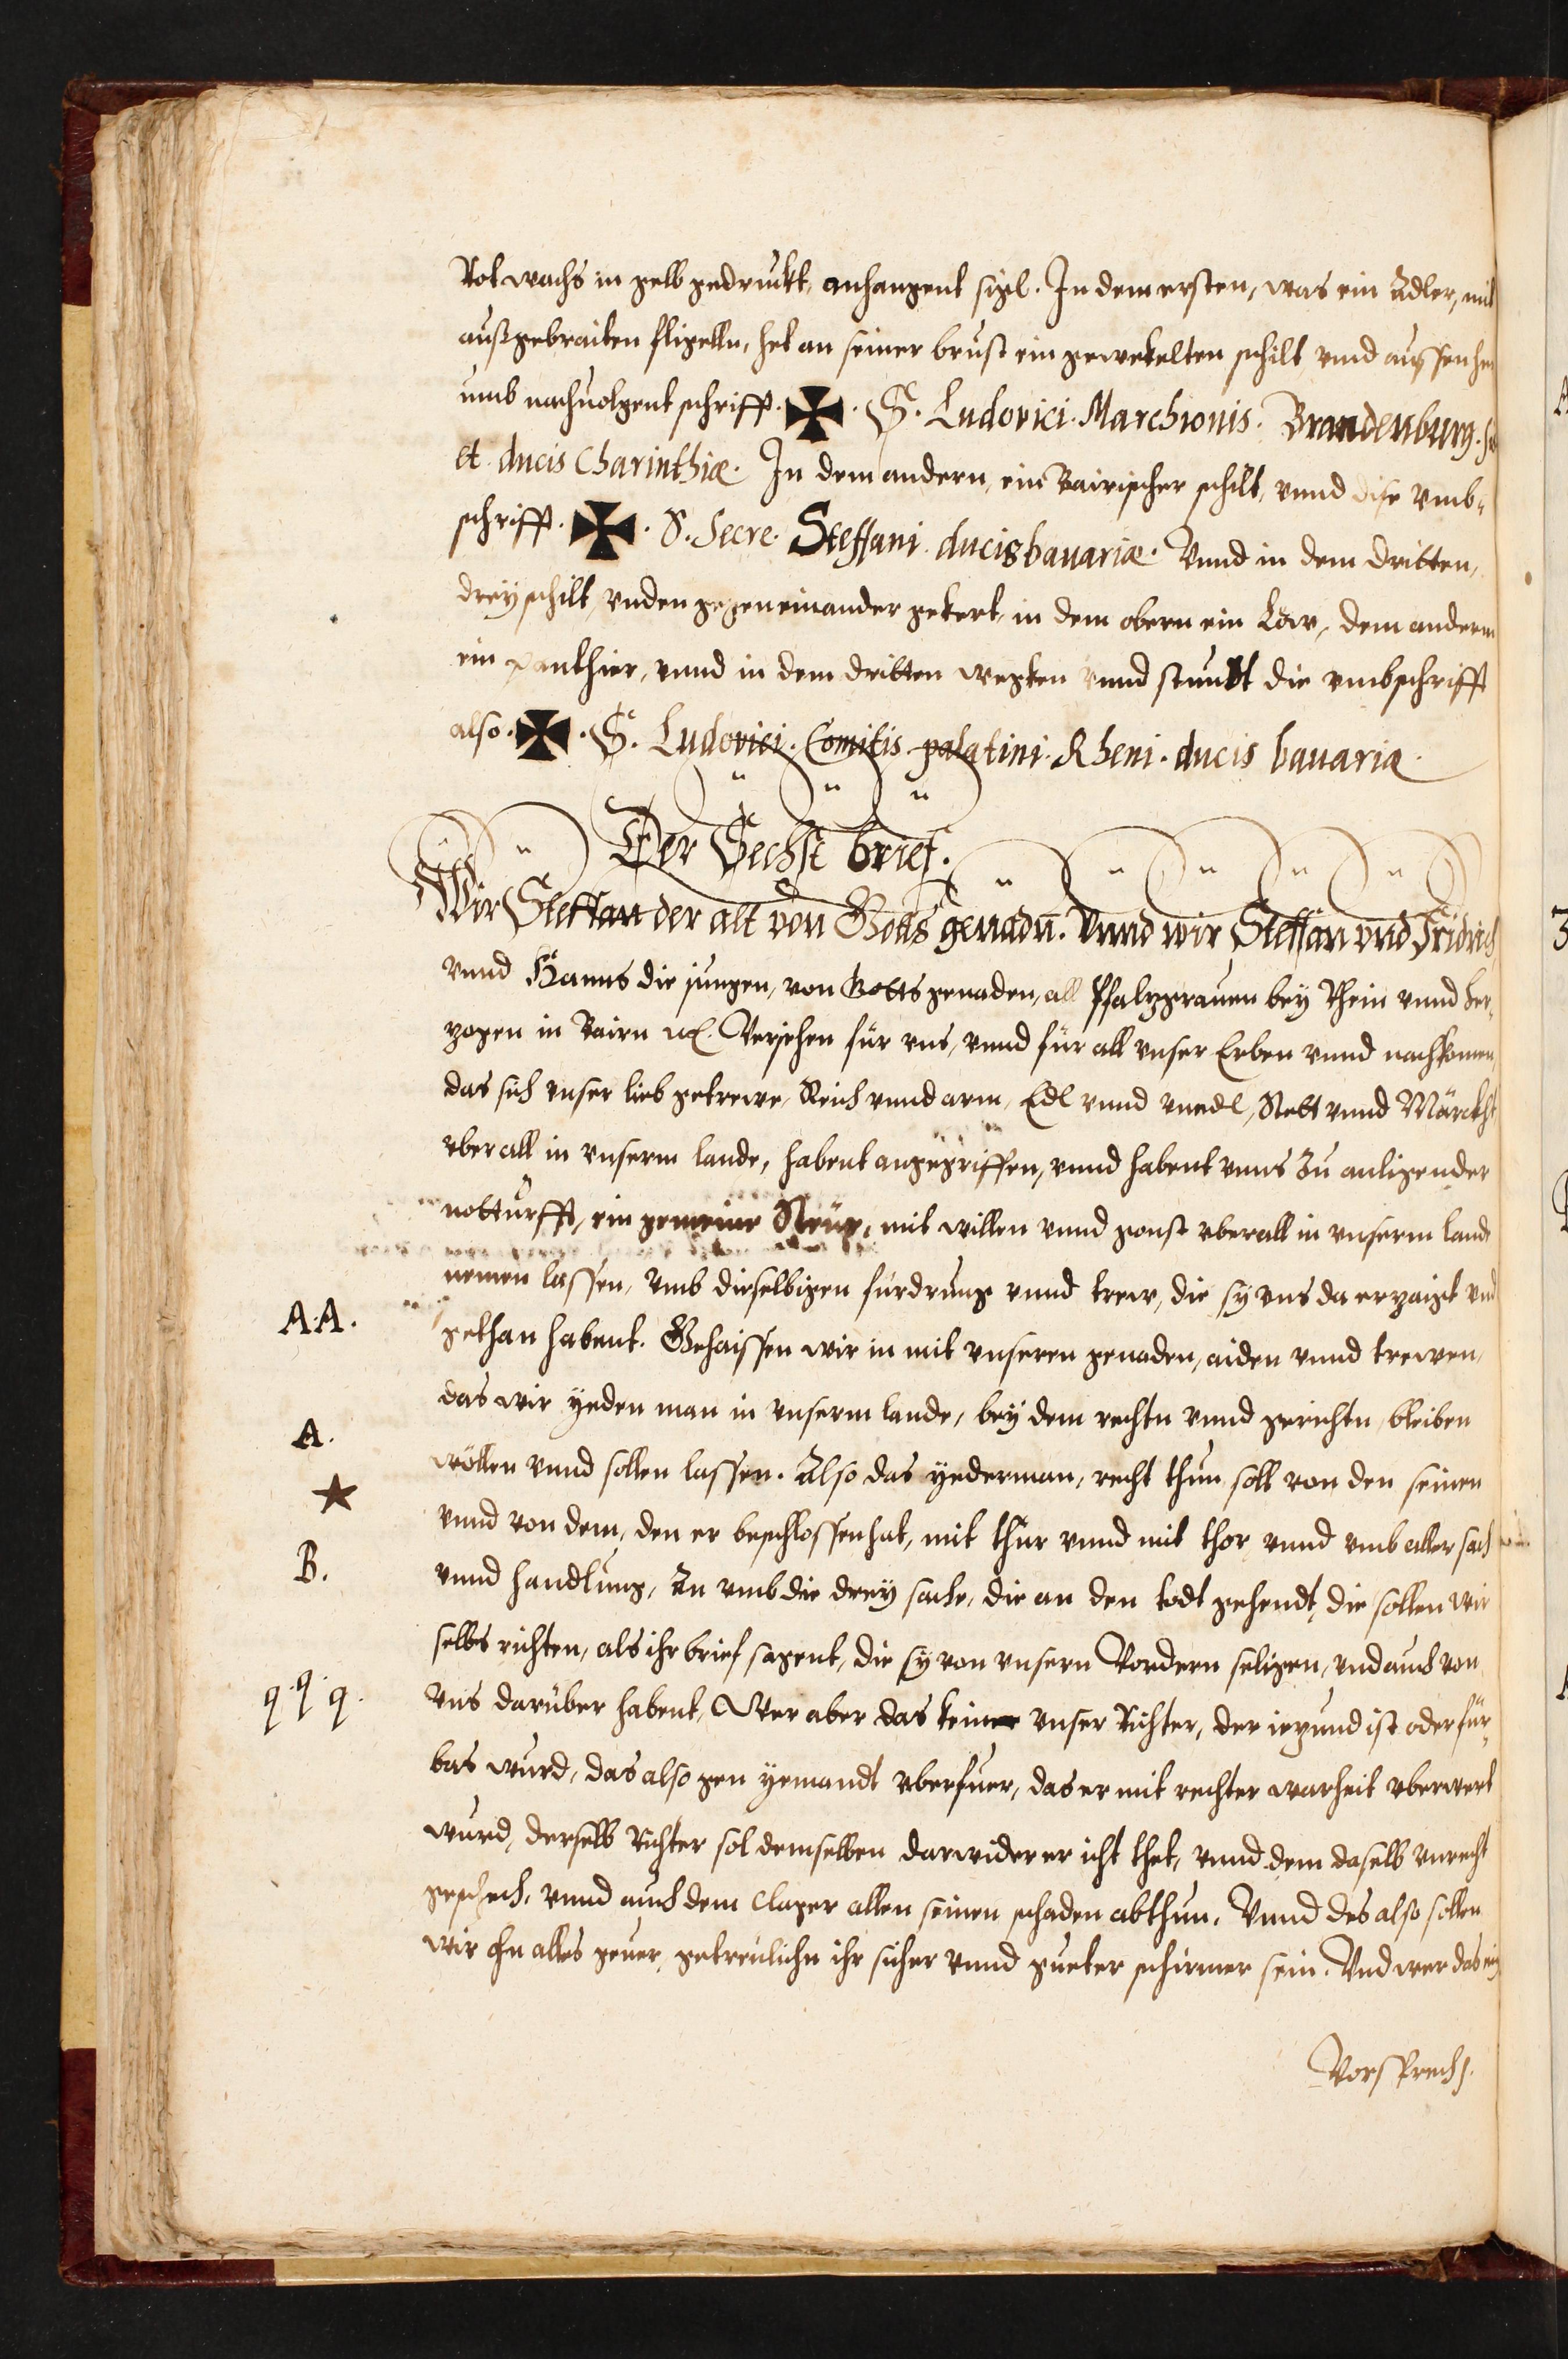 Rot wachs in gelb gedruckt, anhangent sigl. In dem ersten, was ein Adler, mit
außgebraiten fligelln, het an seiner brust ein gewekelten schilt vnnd aussen he
umb nachuolgent schrifft. ✠. S. Ludovici. Marchionis. Brandenburg.
et ducis Charinthiæ. In dem andern, ein Bairischer schilt, vnnd dise vmb-
schrifft. ✠. S. Secre. Steffani ducis bauariæ. Vnnd in dem dritten,
drey schilt, vnden gegen einander gekert, in dem obern ein Low, dem anderm
ein panthier, vnnd in dem dritten wegken vnnd stundt die vmbschrifft
also. ✠. S. Ludovici. Comitis palatini. Rheni. ducis bauariæ.
Der Sechst brief.
Wir Steffan der alt von Gotts genadn. Vnnd wir Steffan vnd Fridrich
vnnd Hanns die jungen, von Gotts genaden, all Pfalzgrauen bey Rhein vnnd Her-
zogen in Bairn ꝛc. Verjehen für vns, vnnd für all vnser Erben vnnd nachkomen,
das sich vnser lieb getrewe, Reich vnnd arm, Edl vnnd vnedl, Stett vnnd Märckht
vber all in vnserm lande, habent angegriffen, vnnd habent vnns zu anligender
notturfft, ein gemeine Steur, mit willen vnnd gonst vberall in vnserm lande
nemen lassen, vmb dieselbigen furdrung vnnd trew, die sy vns da erzaigt vnd
A.A. gethan habent. Gehaissen wir in mit vnseren genaden, aiden vnnd trewen,
das wir yeden man in vnserm lande, bey dem rechtn vnnd gerichtn, bleiben
A. wöllen vnnd sollen lassen. Also das yederman, recht thun soll von den seinen
★ vnnd von dem, den er beschlossen hat, mit thür vnnd mit thor vnnd vmb aller sach
B. vnnd handlung, An vmb die drey sache, die an den todt gehendt, die sollen wir
selbs richten, als ihr brief sagent, die sy von vnsern Vordern seligen, vnd auch von
q.q.q. Vns darüber habent, Wer aber das keiner vnser Richter, der iezund ist oder für-
bas wurd, das also gen yemandt vberfuer, das er mit rechter warheit vberwert
wurd, derselb Richter sol demselben darwider er icht thet, vnnd dem daselb vnrecht
geschech, vnnd auch dem Clager allen seinen schaden abthun, Vnnd des also sollen
wir on alles geuer, getreulichn ihr sicher vnnd gueter schirmer sein. Vnd wer das ein
Vorsprech.